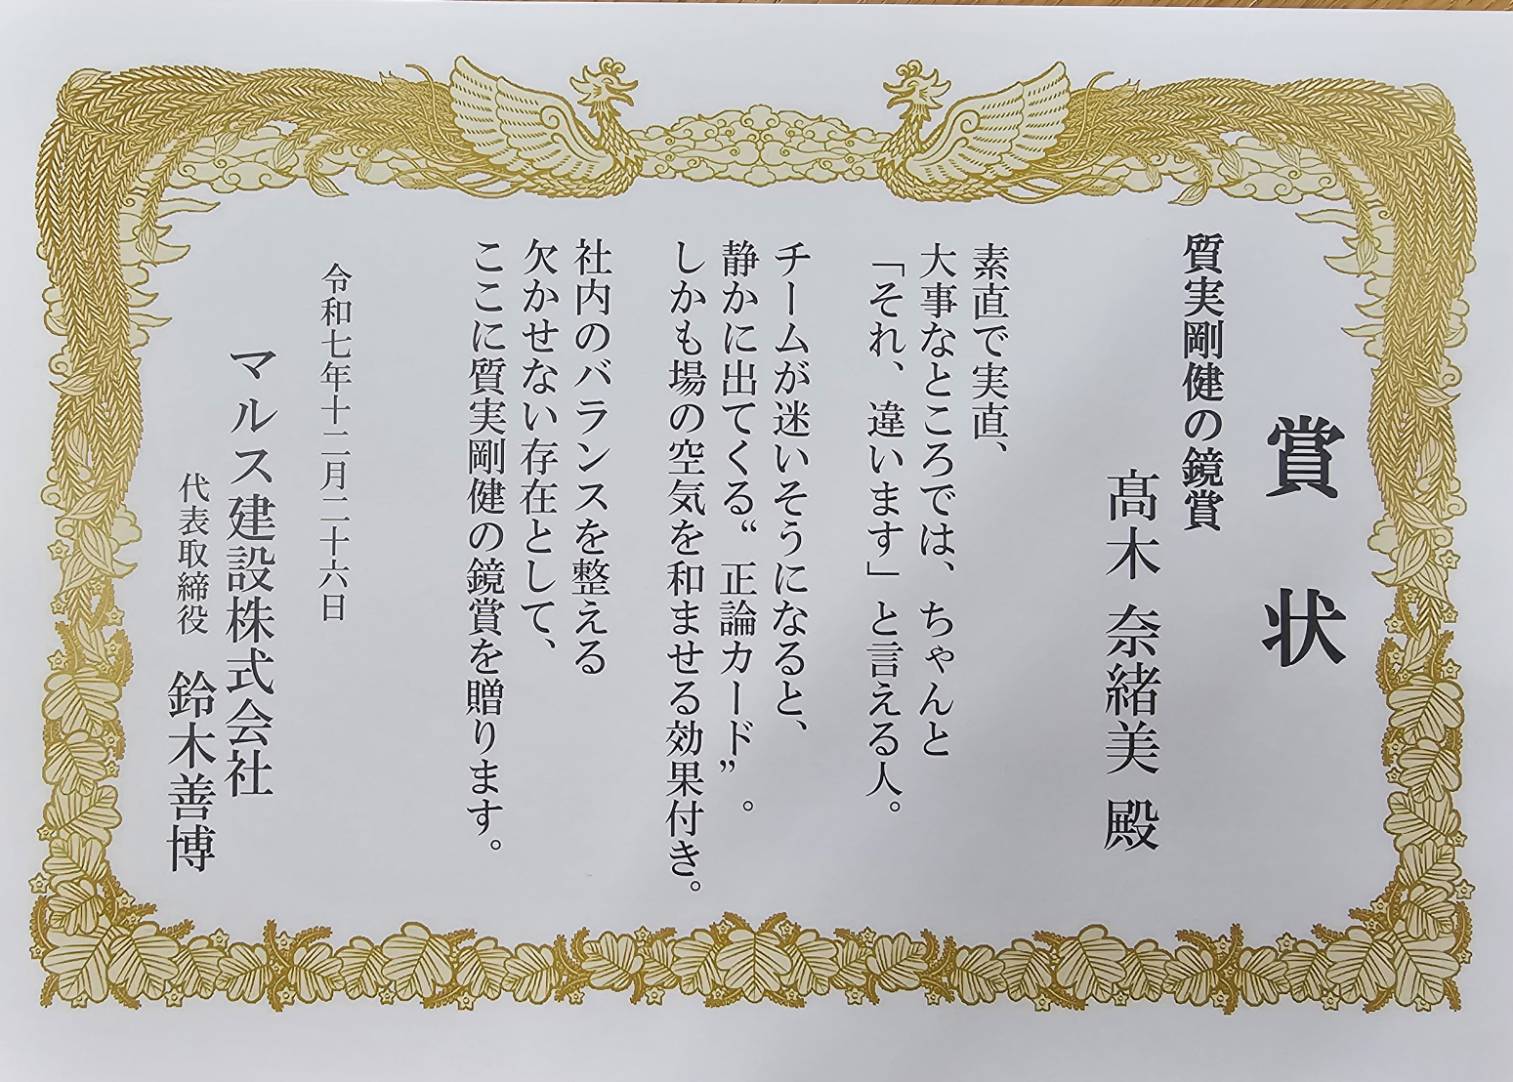 賞状
質実剛健の鏡賞
髙木 奈緒美 殿
素直で実直、
大事なところでは、ちゃんと
「それ、違います」と言える人。
チームが迷いそうになると、
静かに出てくる“正論カード”。
しかも場の空気を和ませる効果付き。
社内のバランスを整える
欠かせない存在として、
ここに質実剛健の鏡賞を贈ります。
令和七年十二月二十六日
マルス建設株式会社
代表取締役 鈴木善博